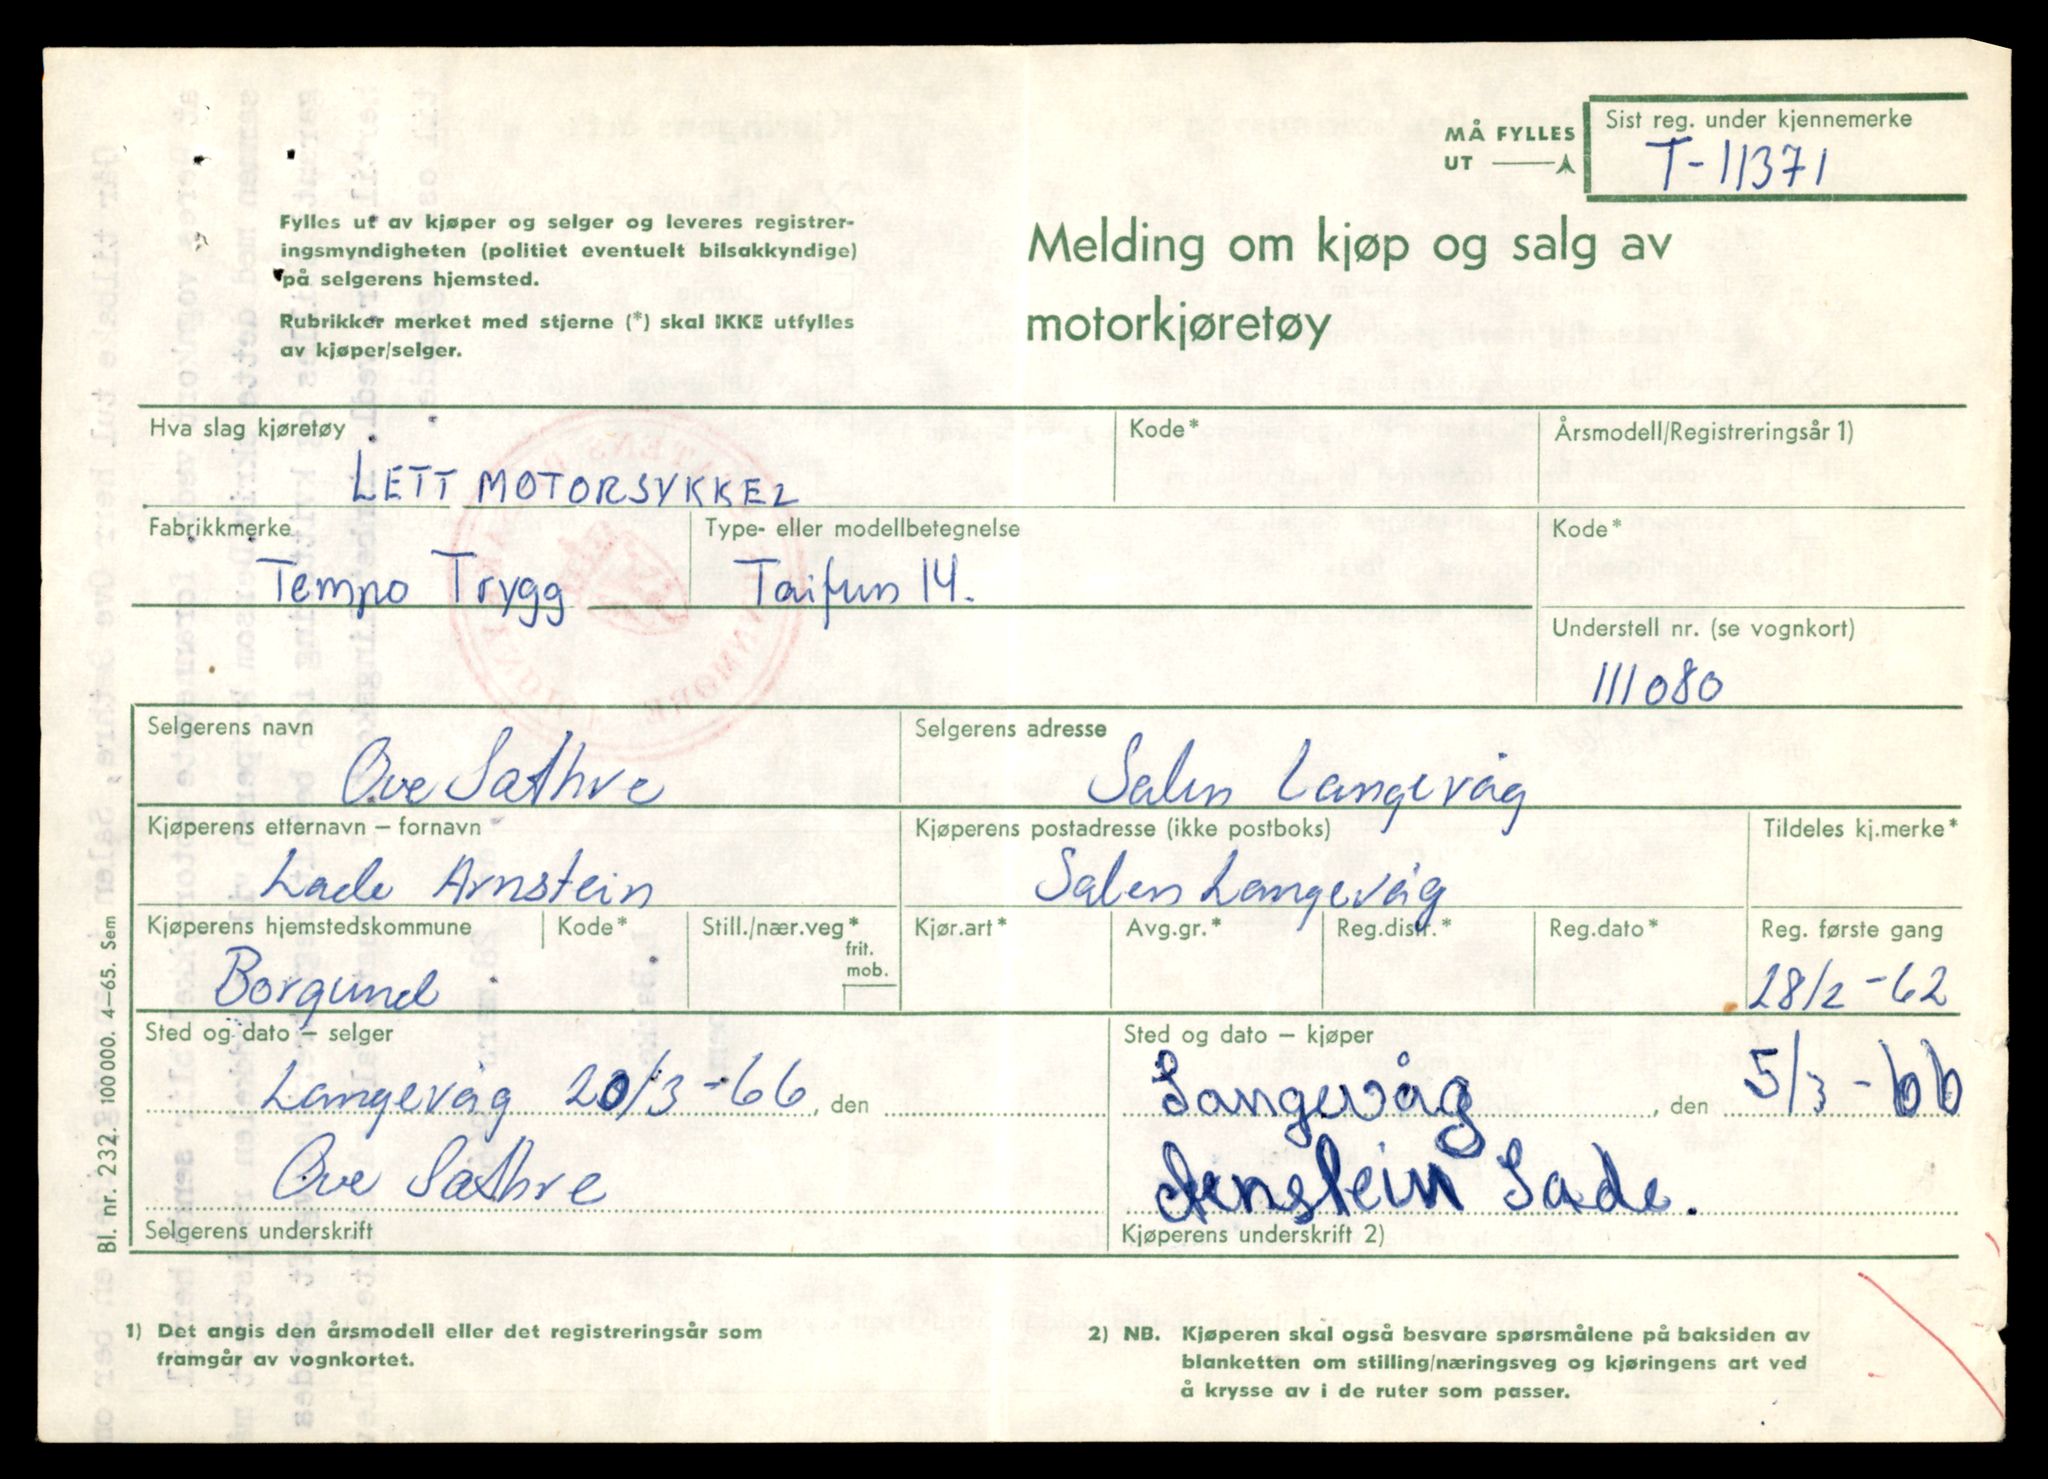 MÅ FYLLES
UT
Sist reg. under kjennemerke
T-11371
Fylles ut av kjøper og selger og leveres registrer-
ingsmyndigheten (politiet eventuelt bilsakkyndige)
på selgerens hjemsted.
Rubrikker merket med stjerne (*) skal IKKE utfylles
av kjøper/selger.
Melding om kjøp og salg av
motorkjøretøy
Hva slag kjøretøy Kode* Årsmodell/Registreringsår 1)
LETT MOTORSYKKEL
Fabrikkmerke Type- eller modellbetegnelse Kode*
Tempo Trygg Taifun 14.
Understell nr. (se vognkort)
111080
Selgerens navn Selgerens adresse
Ove Sathre Salen Langevåg
Kjøperens etternavn – fornavn Kjøperens postadresse (ikke postboks) Tildeles kj.merke*
Lade Arnstein Salen Langevåg
Kjøperens hjemstedskommune Kode* Still./nær.veg* frit. mob. Kjør.art* Avg.gr.* Reg.distr.* Reg.dato* Reg. første gang
Borgund 28/2-62
Sted og dato – selger Sted og dato – kjøper
Langevåg 20/3-66, den Langevåg, den 5/3-66
Ove Sathre Arnstein Lade.
Selgerens underskrift Kjøperens underskrift 2)
Bl. nr. 232. 100 000. 4–65. Sem
1) Det angis den årsmodell eller det registreringsår som
framgår av vognkortet.
2) NB. Kjøperen skal også besvare spørsmålene på baksiden av
blanketten om stilling/næringsveg og kjøringens art ved
å krysse av i de ruter som passer.